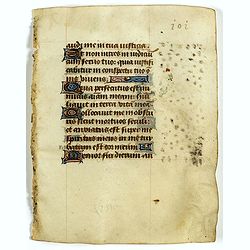 101
audi me in tua iusticia.
Et non intres in iudici
cum servo tuo: quia iustifi
cabitur in conspectu tuo
nis vivens.
Quia persecutus est ini
micus meam: humi
in terra vita mea
Collocavit me in obscu
ris sicut mortuos seculi:
et anxiatus est super me
spiritus meus in me tur
batum est cor meum
Memor fui dierum an